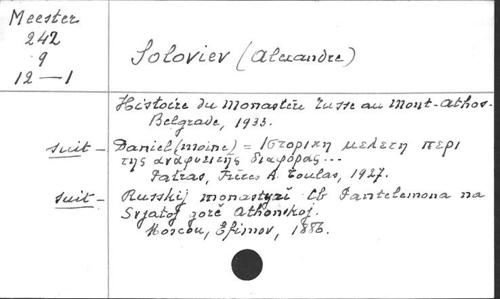 Meester
242
9
12—1
Soloviev (Alexandre)
Histoire du Monastère russe au Mont-Athos.
Belgrade, 1933.
suit – Daniel (moine) = Ιστορικη μελετη περι
της αναφυεισης διαφορας...
Patras, Frères A. Toulas, 1927.
suit – Russkij monastyrĭ Sb Pantelemona na
Svjatoj gorě Athonskoj.
Moscou, Efimov, 1886.